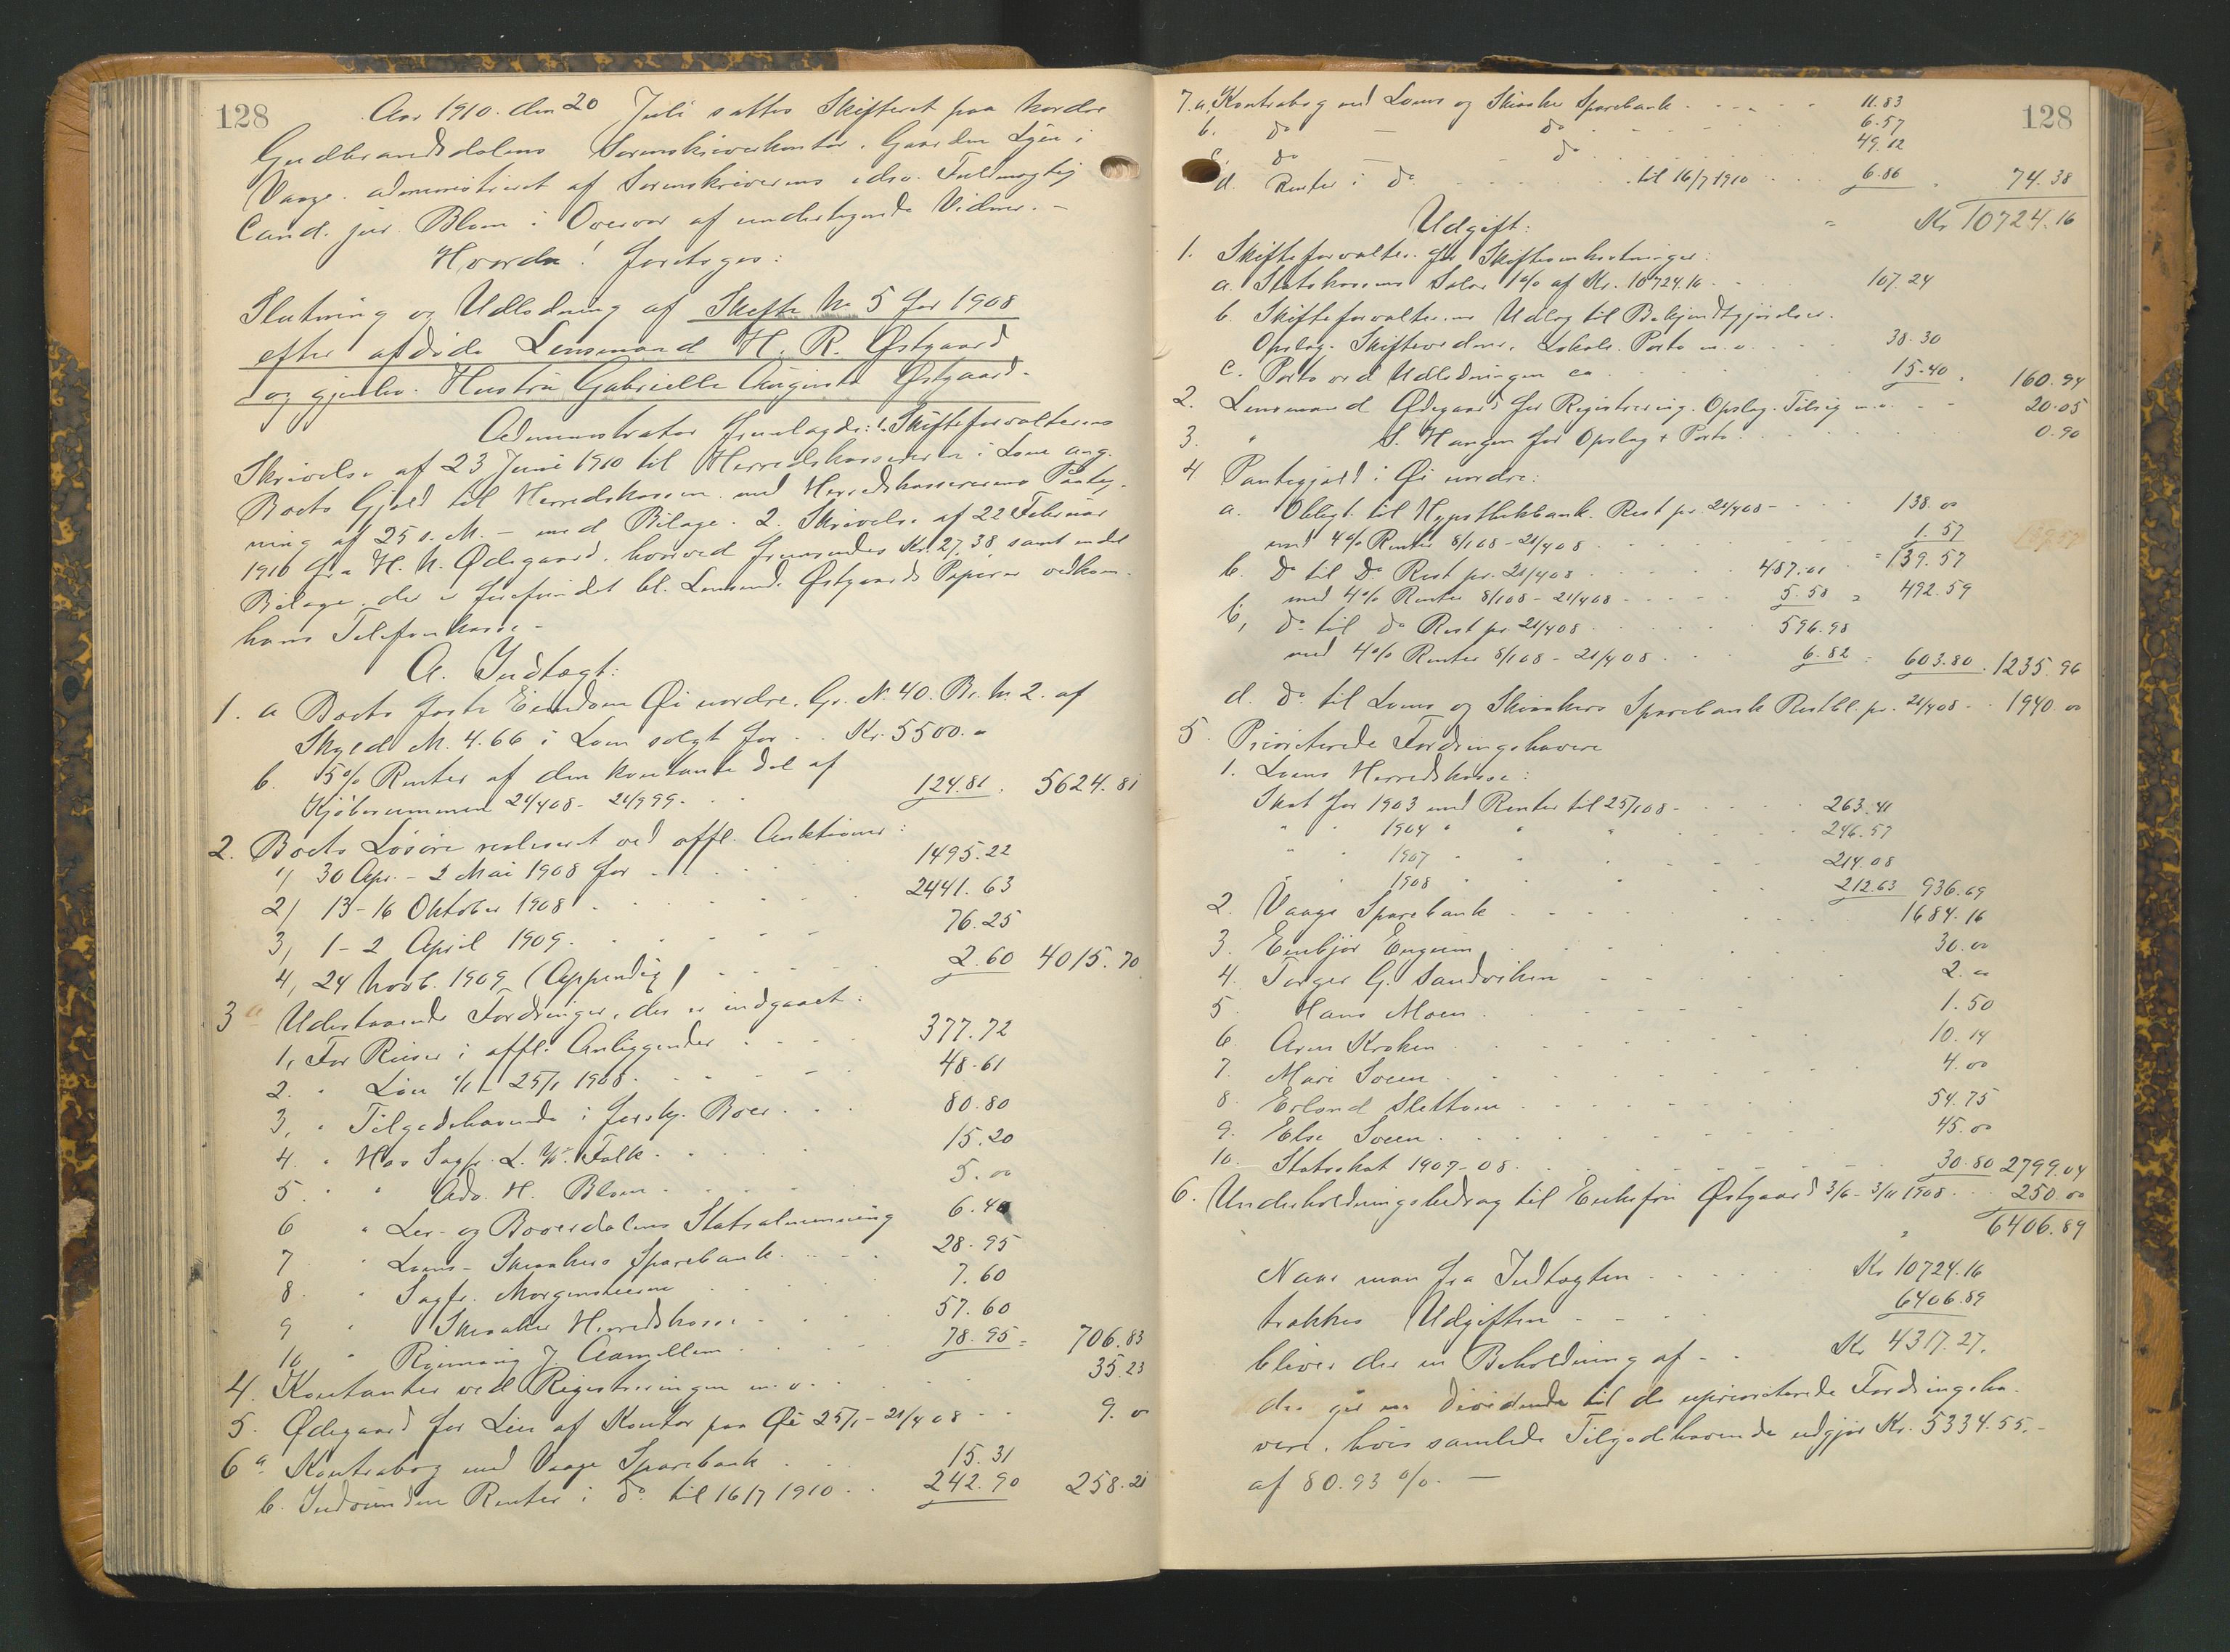 128
Aar 1910 den 20 Juli sattes Skifteret paa Nordre
Gudbrandsdalens Sorenskriverkontor, Gaarden Syse i
Vaage, administreret af Sorenskriverens edsv. Fuldmægtig
Cand. jur. Blom i Overvær af undertegnede Vidner. –
Hvorda! foretoges:
Slutning og Udlodning af Skifte No 5 for 1908
efter afdøde Lensmand H. R. Østgaard
og gjenlev. Hustru Gabrielle Augusta Østgaard.
Administrator fremlagde: 1. Skifteforvalterens
Skrivelse af 23 Juni 1910 til Herredskassereren i Lom ang.
Boets Gjæld til Herredskassen med Herredskassererens Paateg-
ning af 25 s. M. – med Bilage. 2. Skrivelse af 22 Februar
1910 fra H. N. Ødegaard, hvorved fremsendes Kr. 27.38, samt endel
Bilage, der er forefundet bl. Lensmd. Østgaards Papirer vedkom.
hans Telefonkasse –
A. Indtægt:
1. a Boets faste Eiendom Øi nordre, Gr. N. 40. Br. No 2. af
Skyld M. 4.66 i Lom solgt for . . Kr. 5500.00
b. 5% Renter af den kontante Del af
Kjøbesummen 21/4 08 - 21/9 99 . . 124.81 . 5624.81
2. Boets Løsøre realiseret ved offl. Auktioner:
1) 30 Apr. - 2 Mai 1908 for . . 1495.22
2) 13-16 Oktober 1908 . . 2441.63
3, 1-2 April 1909 . . 76.25
4, 24 Novb. 1909 (Appendix) . . 2.60 4015.70
3 a Udestaaende Fordringer, der er indgaaet:
1, For Reiser i offl. Anliggender . . 377.72
2. " Løn 1/1 - 25/1 1908 . . 48.61
3, " Tilgodehavende i forskj. Boer . . 80.80
4. " Hos Sagf. L. W. Falk . . 15.20
5. " " Adv. H. Blom . . 5.00
6 " Lei- og Bøverdalens Statsalmenning 6.40
7 " Loms- Skiaakers Sparebank . . 28.95
8. " Sagf. Morgenstierne 7.60
9 " Skiaaker Herredskasse . . 57.60
10 " Rigmaning J. Aamellem . . 78.95 = 706.83
4. Kontanter ved Registreringen m.v. . . 35.23
5. Ødegaard for Leie af Kontor paa Øi 25/1 - 21/4 08 . . 9.00
6 a. Kontrabog med Vaage Sparebank . . 15.31
b. Indvundne Renter i do til 16/7 1910 . . 242.90 258.21
128
7. a, Kontrabog med Loms og Skiaaker Sparebank . . 11.83
b. do - do . . 6.57
c. do - do . . 49.12
d. Renter i do . . til 16/7 1910 . . 6.86 74.38
Kr. 10724.16
Udgift:
1. Skifteforvalter for Skifteomkostninger:
a. Statskassens Salær 1% af Kr. 10724.16 . . 107.24
b. Skifteforvalterens Udlæg til Bekjendtgjørelser,
Opslag, Skiftevidner, Lokale, Porto m.v. . . 38.30
c. Porto ved Udlodningen ca . . 15.40 . 160.94
2. Lensmand Ødegaard for Registrering, Opslag, Tilsig m.v. . . 20.05
3. " S. Haugen for Opslag & Porto . . 0.90
4 Pantegjæld i Øi nordre:
a. Obligt. til Hypothekbank. Rest pr. 21/4 08 - . . 138.00
med 4% Renter 8/1 08 - 21/4 08 . . 1.57 139.57
= 139.57
b. do til do Rest pr. 21/4 08 . . 487.01
med 4% Renter 8/1 08 - 21/4 08 . . 5.58 = 492.59
c, do til do Rest pr. 21/4 08 . . 596.98
med 4% Renter 8/1 08 - 21/4 08 . . 6.82 = 603.80 . 1235.96
d. do til Loms og Skiaakers Sparebank Restbl. pr. 21/4 08 . . 1940.00
5. Prioriterede Fordringshavere
1. Loms Herredskasse:
Skat for 1903 med Renter til 25/1 08 - . . 263.41
" " 1904 " " " 246.57
" " 1907 " " " 214.08
" " 1908 " " " 212.63 936.69
2. Vaage Sparebank . . 1684.16
3. Embjør Engum . . 30.00
4. Torger G. Sandviken . . 2.00
5. Hans Moen . . 1.50
6. Arne Kroken . . 10.14
7. Mari Soeen . . 4.00
8. Erland Slettom . . 54.75
9. Else Soeen . . 45.00
10. Statsskat 1907-08 . . 30.80 2799.04
6. Underholdningsbidrag til Enkefru Østgaard 3/6 - 3/11 1908 . . 250.00
6406.89
Naar man fra Indtægten . . Kr. 10724.16
trækkes Udgiften . . 6406.89
bliver der en Beholdning af . . Kr. 4317.27,
der gir en Dividende til de uprioriterede Fordringsha-
vere, hvis samlede Tilgodehavende udgjør Kr. 5334.55. -
af 80.93 %. –